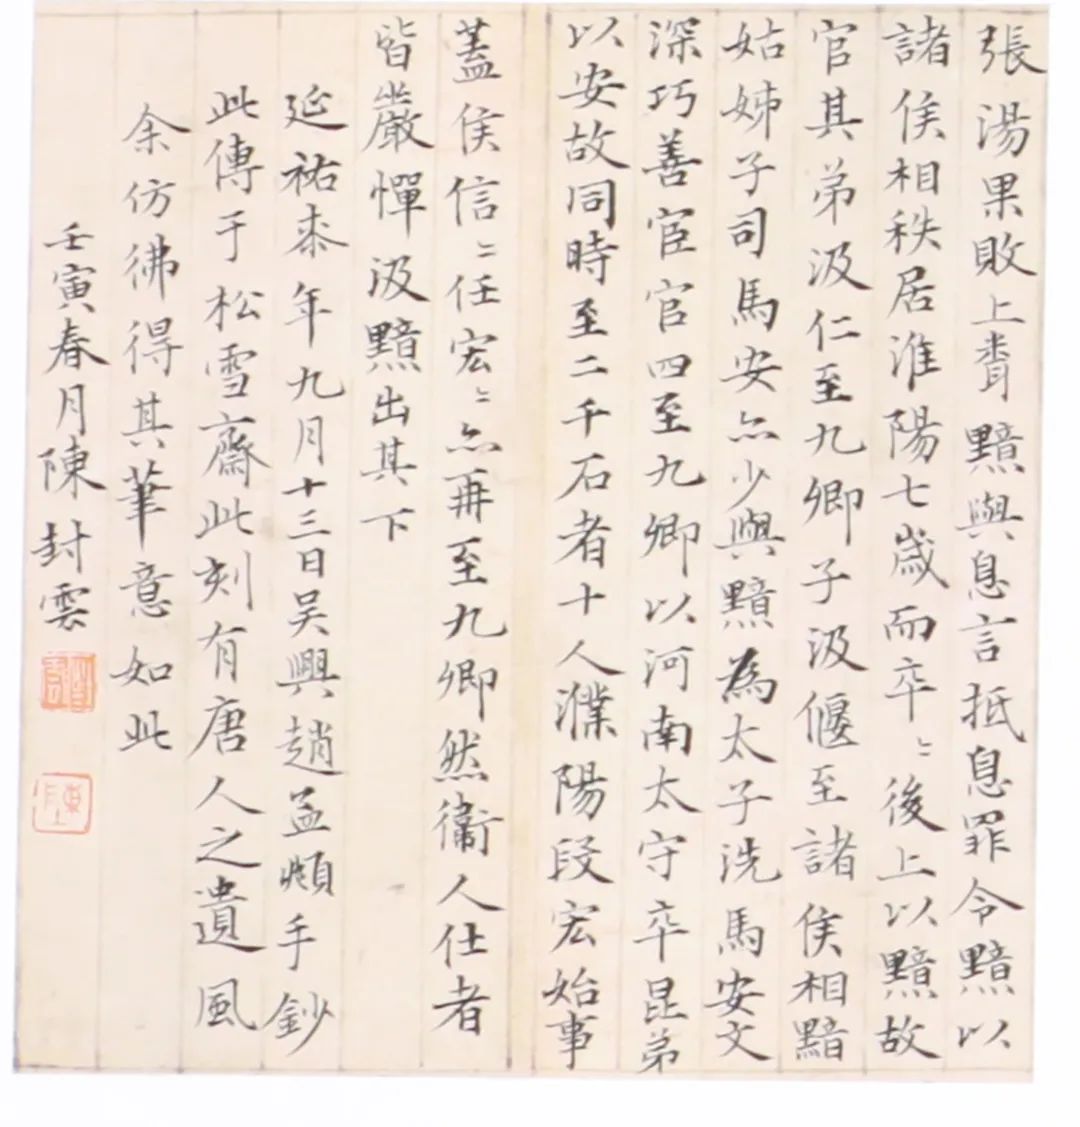 張湯果敗上聞黯與息言抵息罪令黯以
諸侯相秩居淮陽七歲而卒〻後上以黯故
官其弟汲仁至九卿子汲偃至諸侯相黯
姑姊子司馬安亦少與黯為太子洗馬安文
深巧善宦官四至九卿以河南太守卒昆弟
以安故同時至二千石者十人濮陽段宏始事
蓋侯信〻任宏〻亦再至九卿然衞人仕者
皆嚴憚汲黯出其下
延祐桼年九月十三日吴興趙孟頫手鈔
此傳于松雪齋此刻有唐人之遺風
余仿彿得其筆意如此
壬寅春月陳封雲